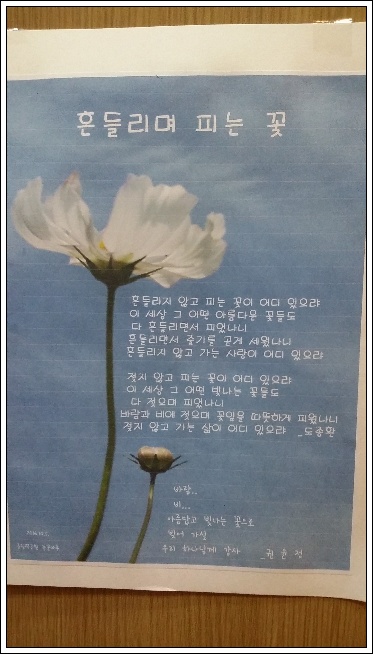 흔들리며 피는 꽃
흔들리지 않고 피는 꽃이 어디 있으랴
이 세상 그 어떤 아름다운 꽃들도
다 흔들리면서 피었나니
흔들리면서 줄기를 곧게 세웠나니
흔들리지 않고 가는 사랑이 어디 있으랴
젖지 않고 피는 꽃이 어디 있으랴
이 세상 그 어떤 빛나는 꽃들도
다 젖으며 피었나니
바람과 비에 젖으며 꽃잎을 따뜻하게 피웠나니
젖지 않고 가는 삶이 어디 있으랴 _도종환
바람..
비...
아름답고 빛나는 꽃으로
빚어 가실
우리 하나님께 감사 _권윤정